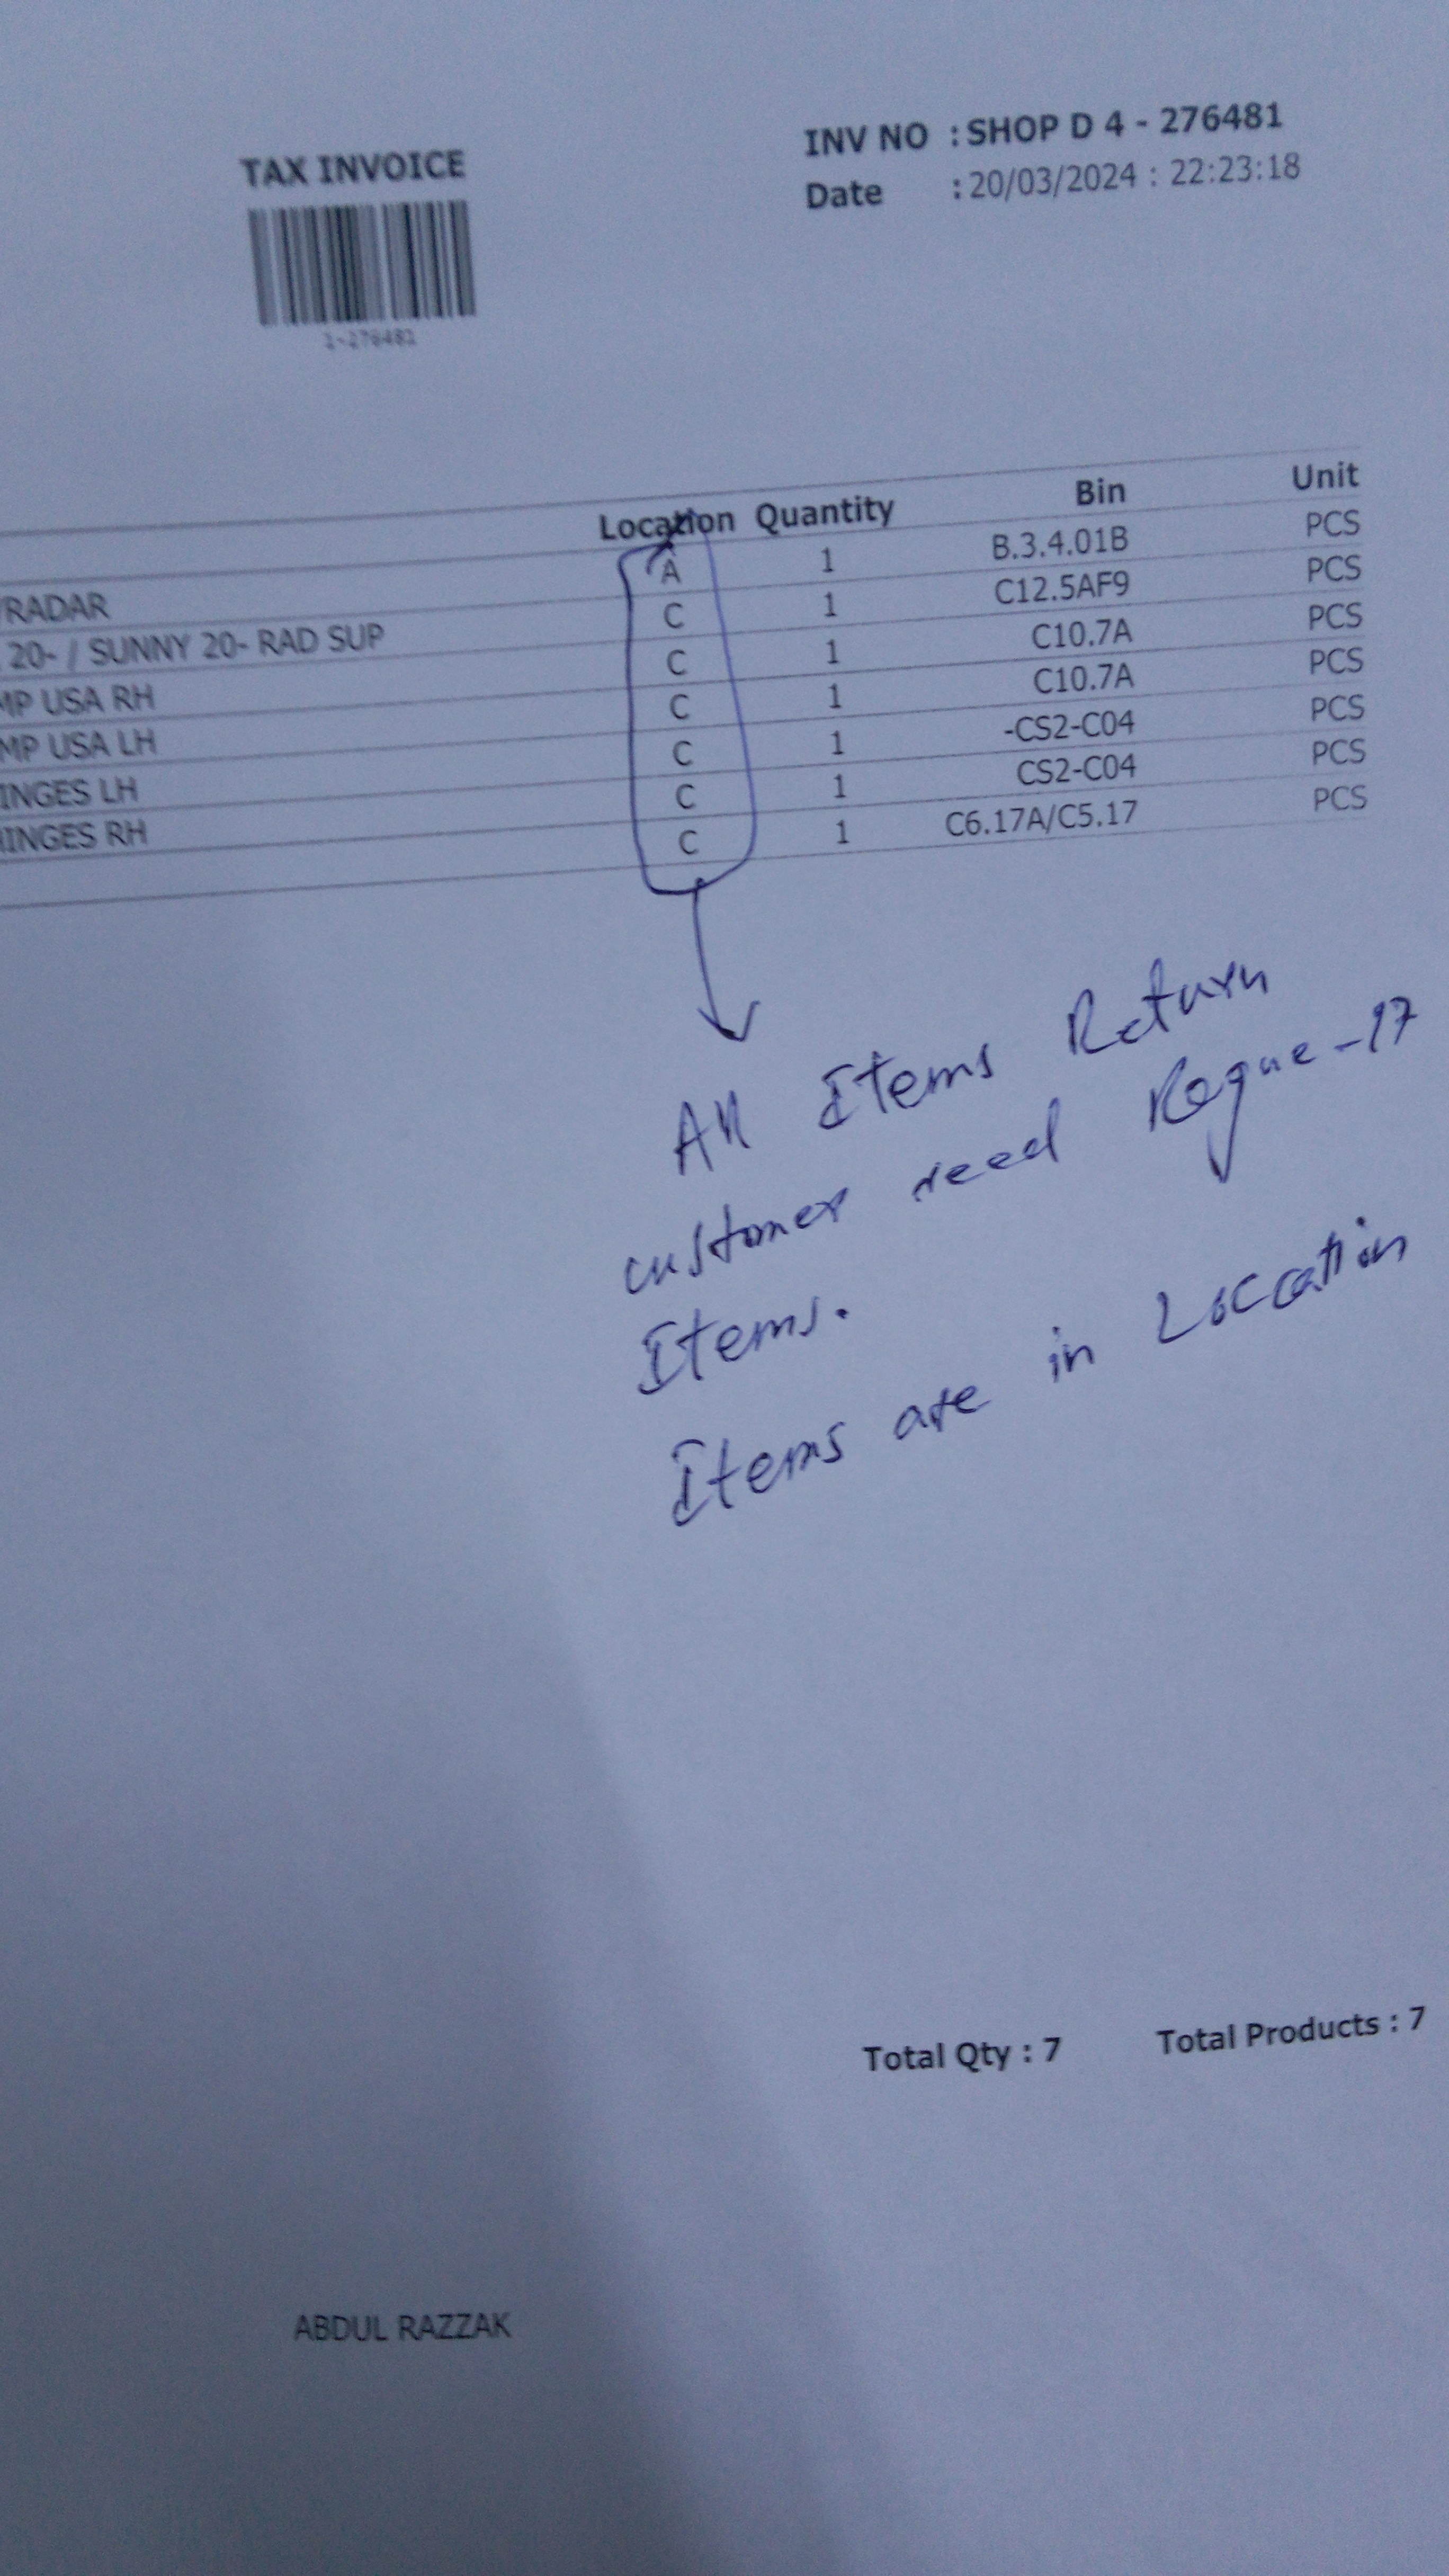 TAX INVOICE
INV NO : SHOP D 4 - 276481
Date : 20/03/2024 : 22:23:18
1-276481
Location Quantity Bin Unit
/RADAR A 1 B.3.4.01B PCS
20- / SUNNY 20- RAD SUP C 1 C12.5AF9 PCS
MP USA RH C 1 C10.7A PCS
MP USA LH C 1 C10.7A PCS
INGES LH C 1 -CS2-C04 PCS
INGES RH C 1 CS2-C04 PCS
C 1 C6.17A/C5.17 PCS
All Items Return
customer need Rogue-17
Items.
Items are in Loccation
Total Qty : 7 Total Products : 7
ABDUL RAZZAK